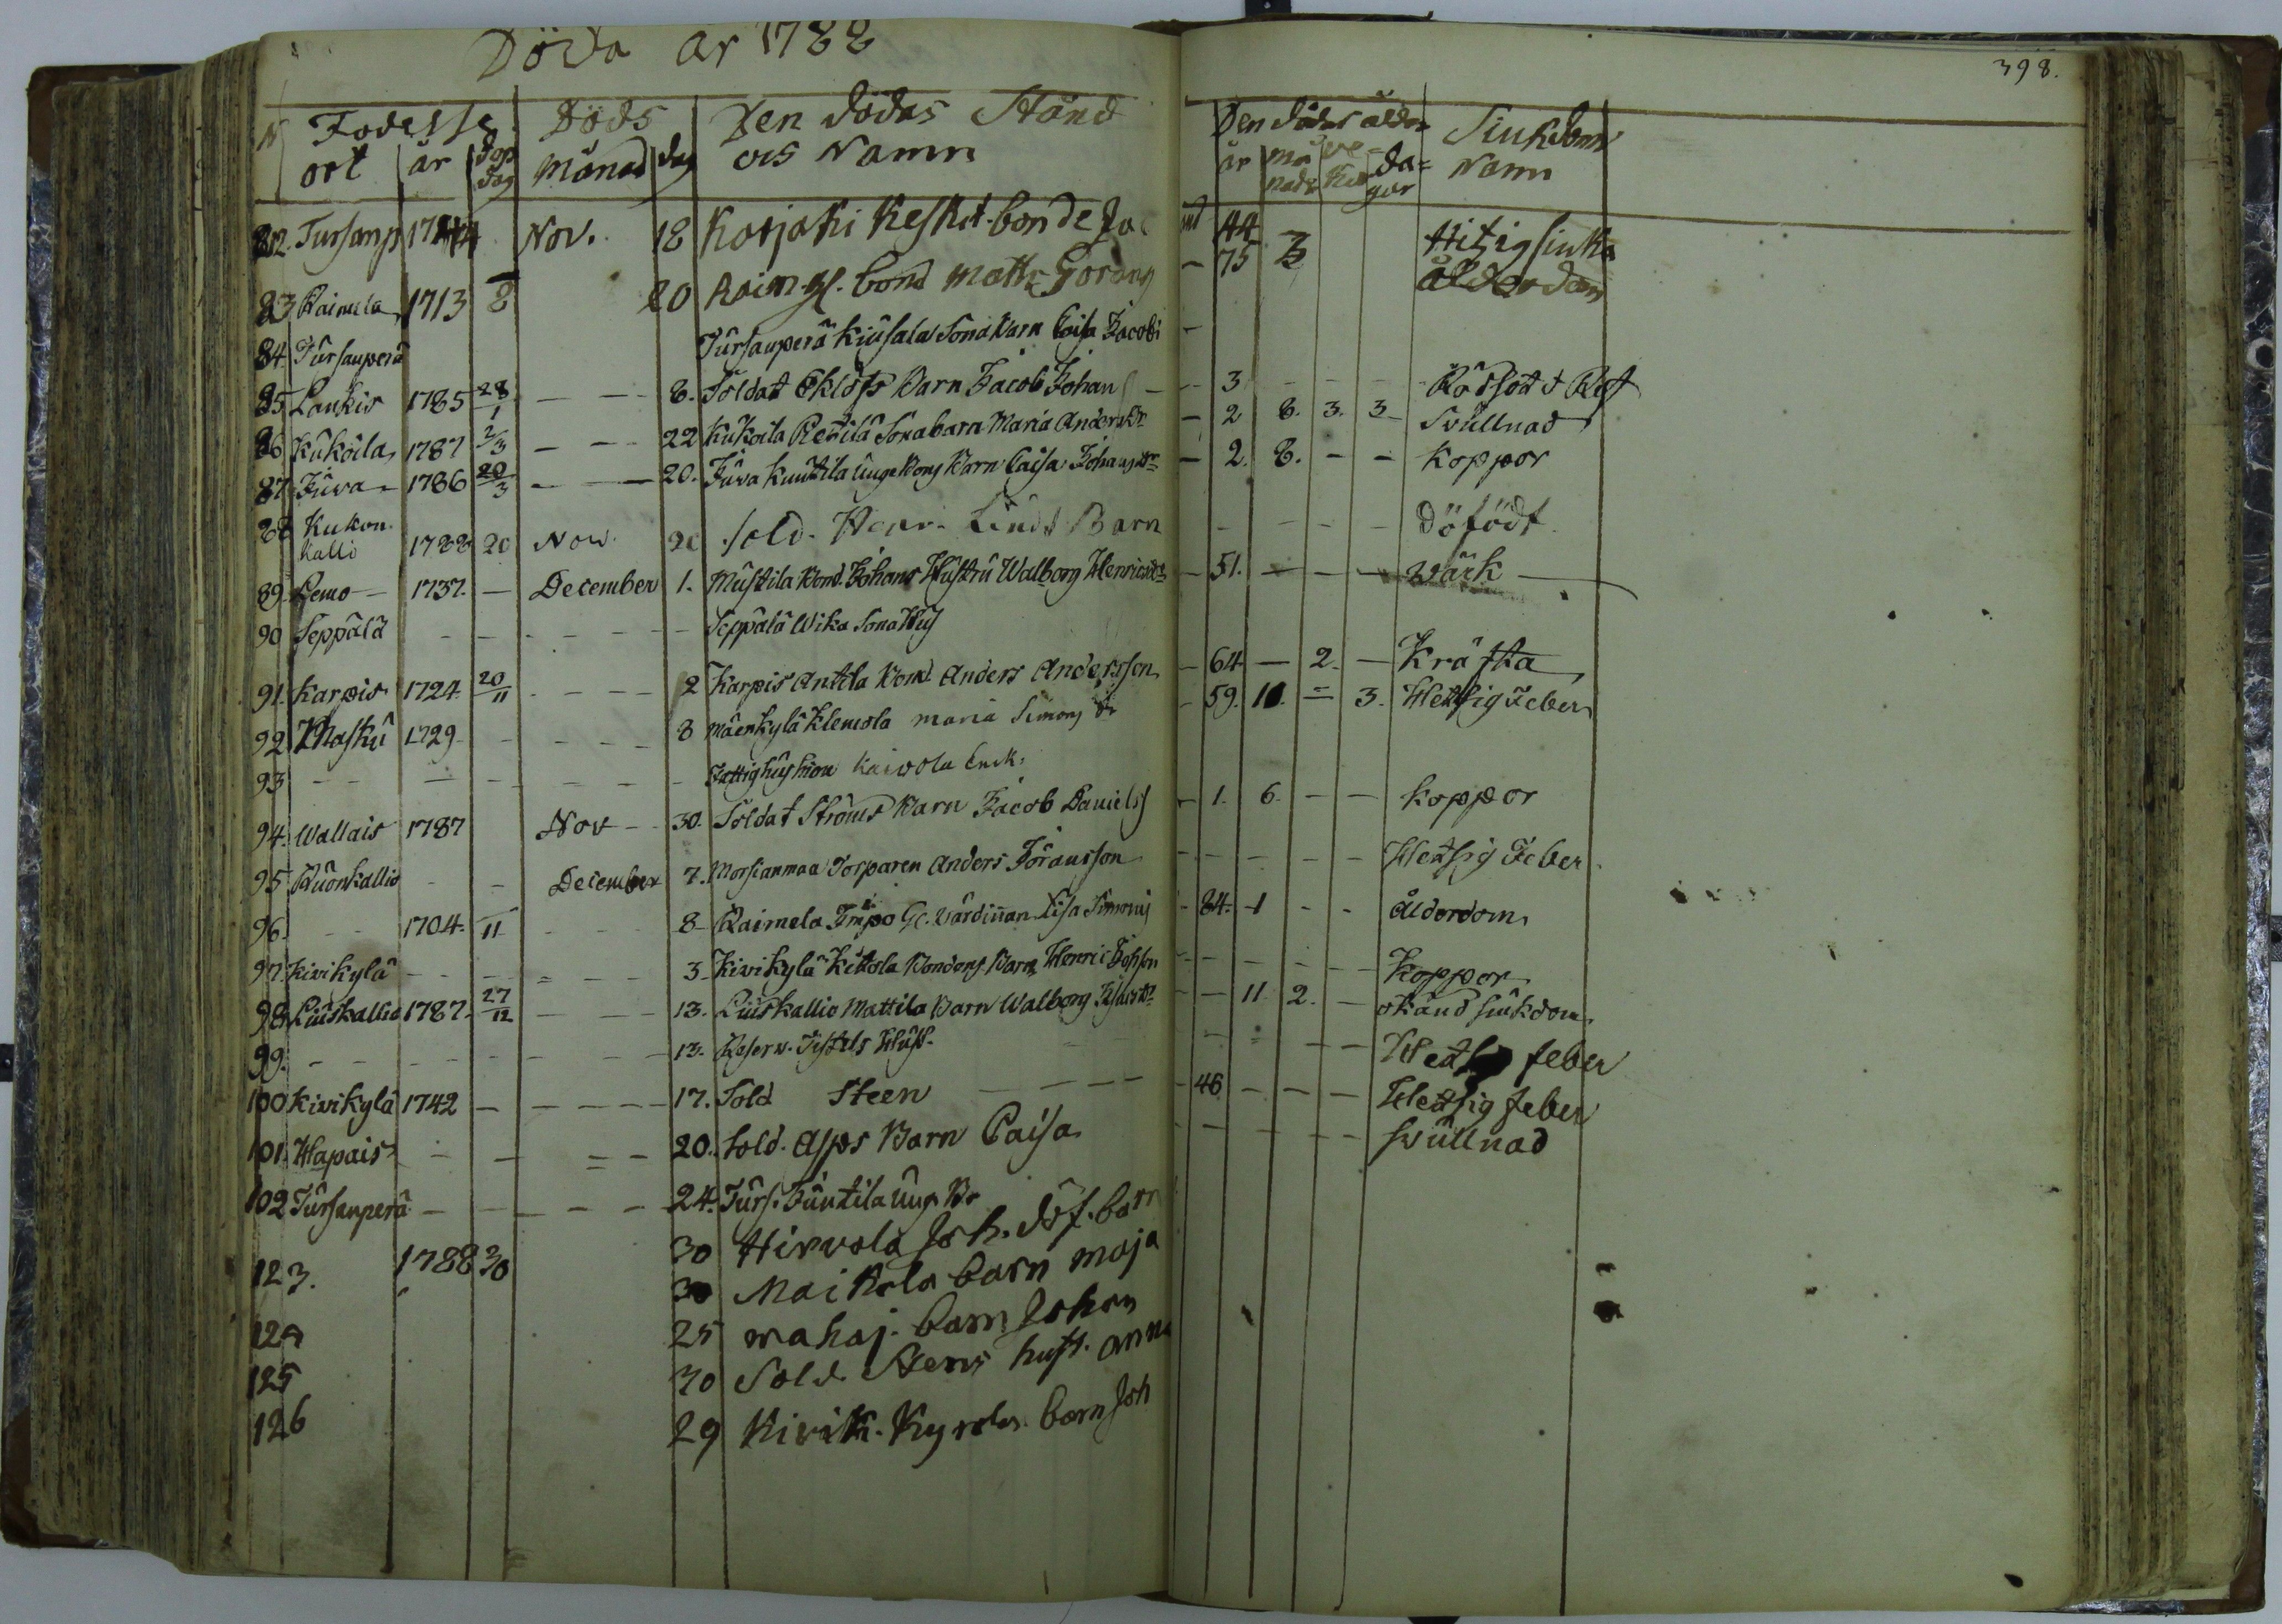 Döda år 1788
398.
N Födelse Döds Den dödas Stånd Den dödas ålder Siukdoms
ort år dop dag månad dag ock Namn år månad. vekor dagar Namn
82. Tursanp 1744 Nov. 18 Karjaki Keskit. bonde Jac 44 Hitzig siuka
83 Raimela 1713 8 20 Raim. gl. bond Matts Görans - 75 3 ålderdom
84. Tursanperä Tursanperä Kiusala Sona Barn Caisa Jacobi -
85 Lankis 1785 28/1 - - 8. Soldat Eklöfs Barn Jacob Johans - - 3 - - - Rödsot
86 Kukoila 1787 2/3 - - 22 Kukoila Rentilä Sonabarn Maria Andersdr - 2 8. 3. 3 Svullnad
87. Juva - 1786 20/3 - - 20. Juva Kuutila unge Bons Barn Caisa Johansdr - 2. 8. - - Koppor
88 Kukon kallio 1788 20 Nov. 20 Sold. Henr. Linds Barn - - - - döfödt
89. Lemo - 1737. - December 1. Mustila Bond. Johans Hustru Walborg Henricsdr - 51. - - - Wärk -
90 Seppälä - - - - - Seppälä Wika Sona Hus
91. Karpis 1724. 20/11 - - - 2 Karpis Antila Bond. Anders Andersson - 64 - 2. - Kräfta
92 Masku 1729 - - - - 8 Mäenkylä Klemola Maria Simons dr - 59. 10. = 3. Hetsig Feber
93 - - - - - - - Fattighushion Kaivola Enk.
94. Wallais 1787 Nov - - 30. Soldat Ströms Barn Jacob Daniels - 1. 6. - - Koppor
95. Ruonkallio - - December 7. Morsianmaa Torparen Anders Göransson - - - - - Hetsig Feber
96. - - 1704. 11 - - - 8 Raimela Impo Gl. värdinnan Lisa Simons - 84. -1 - - Ålderdom
97. Kivikylä - - - = - - 3. Kivikylä Kitola Bondens Barn Henric Johsson - - - - - Koppor
98. Luiskallio 1787. 27/12 - - - 13. Luiskallio Mattila Barn Walborg - - 11. 2. - okänd siukdom
99. - - - - - - 13. Reserv. Hust. - = - - Hetsig feber
100 Kivikylä 1742 - - - - - 17. Sold Steen - - - - - 46 - - - Hetsig feber
101. Hapais - - = - 20. Sold. Asps Barn Caisa - - - - Svullnad
102 Tursanperä - - - - - 24. Turs. Juntila ung. Br
123. 1788 30 30 Hirvola Joh. döf. barn
30 Maikola barn Maja
124 25 wahaj. barn Johan
125 30 Sold. Stens hust. Anna
126 29 Kivik. Kyrola barn Joh